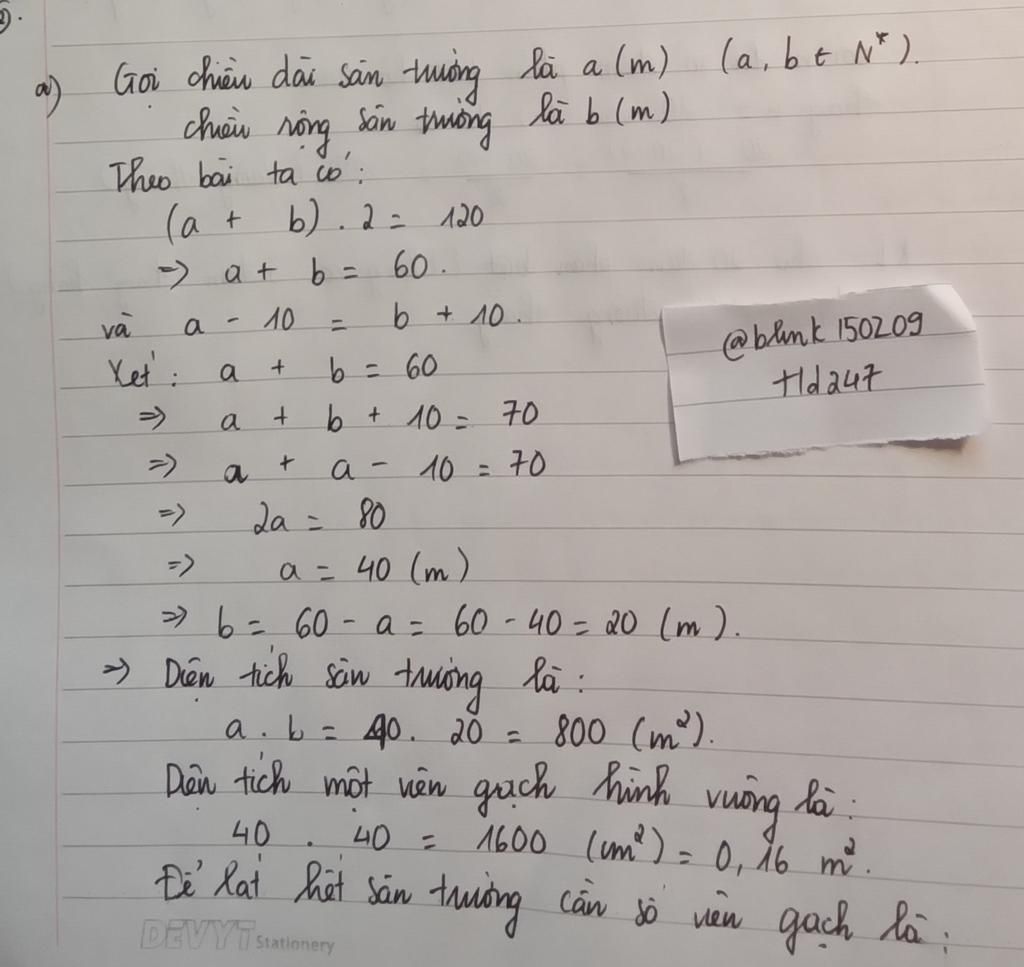 2).
a) Gọi chiều dài sân trường là a (m) (a, b ∈ N*).
chiều rộng sân trường là b (m)
Theo bài ta có:
(a + b) . 2 = 120
=> a + b = 60.
và a - 10 = b + 10.
Xét: a + b = 60
=> a + b + 10 = 70
=> a + a - 10 = 70
=> 2a = 80
=> a = 40 (m)
=> b = 60 - a = 60 - 40 = 20 (m).
=> Diện tích sân trường là:
a . b = 40 . 20 = 800 (m²).
Diện tích một viên gạch hình vuông là:
40 . 40 = 1600 (cm²) = 0,16 m².
Để lát hết sân trường cần số viên gạch là:
@blink150209
tld247
DEVYT Stationery